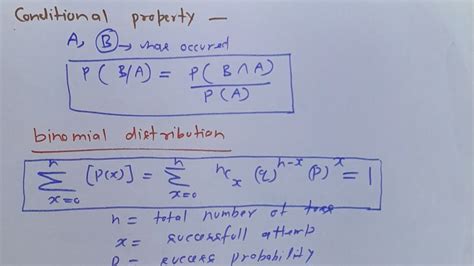 Conditional property —
A, B → has occured
P( B/A) = P( B ∧ A) / P(A)
binomial distribution
n∑x=0 [P(x)] = n∑x=0 ⁿCₓ (q)ⁿ⁻ˣ (p)ˣ = 1
n = total number of
x = successfull attempt
p = success probability